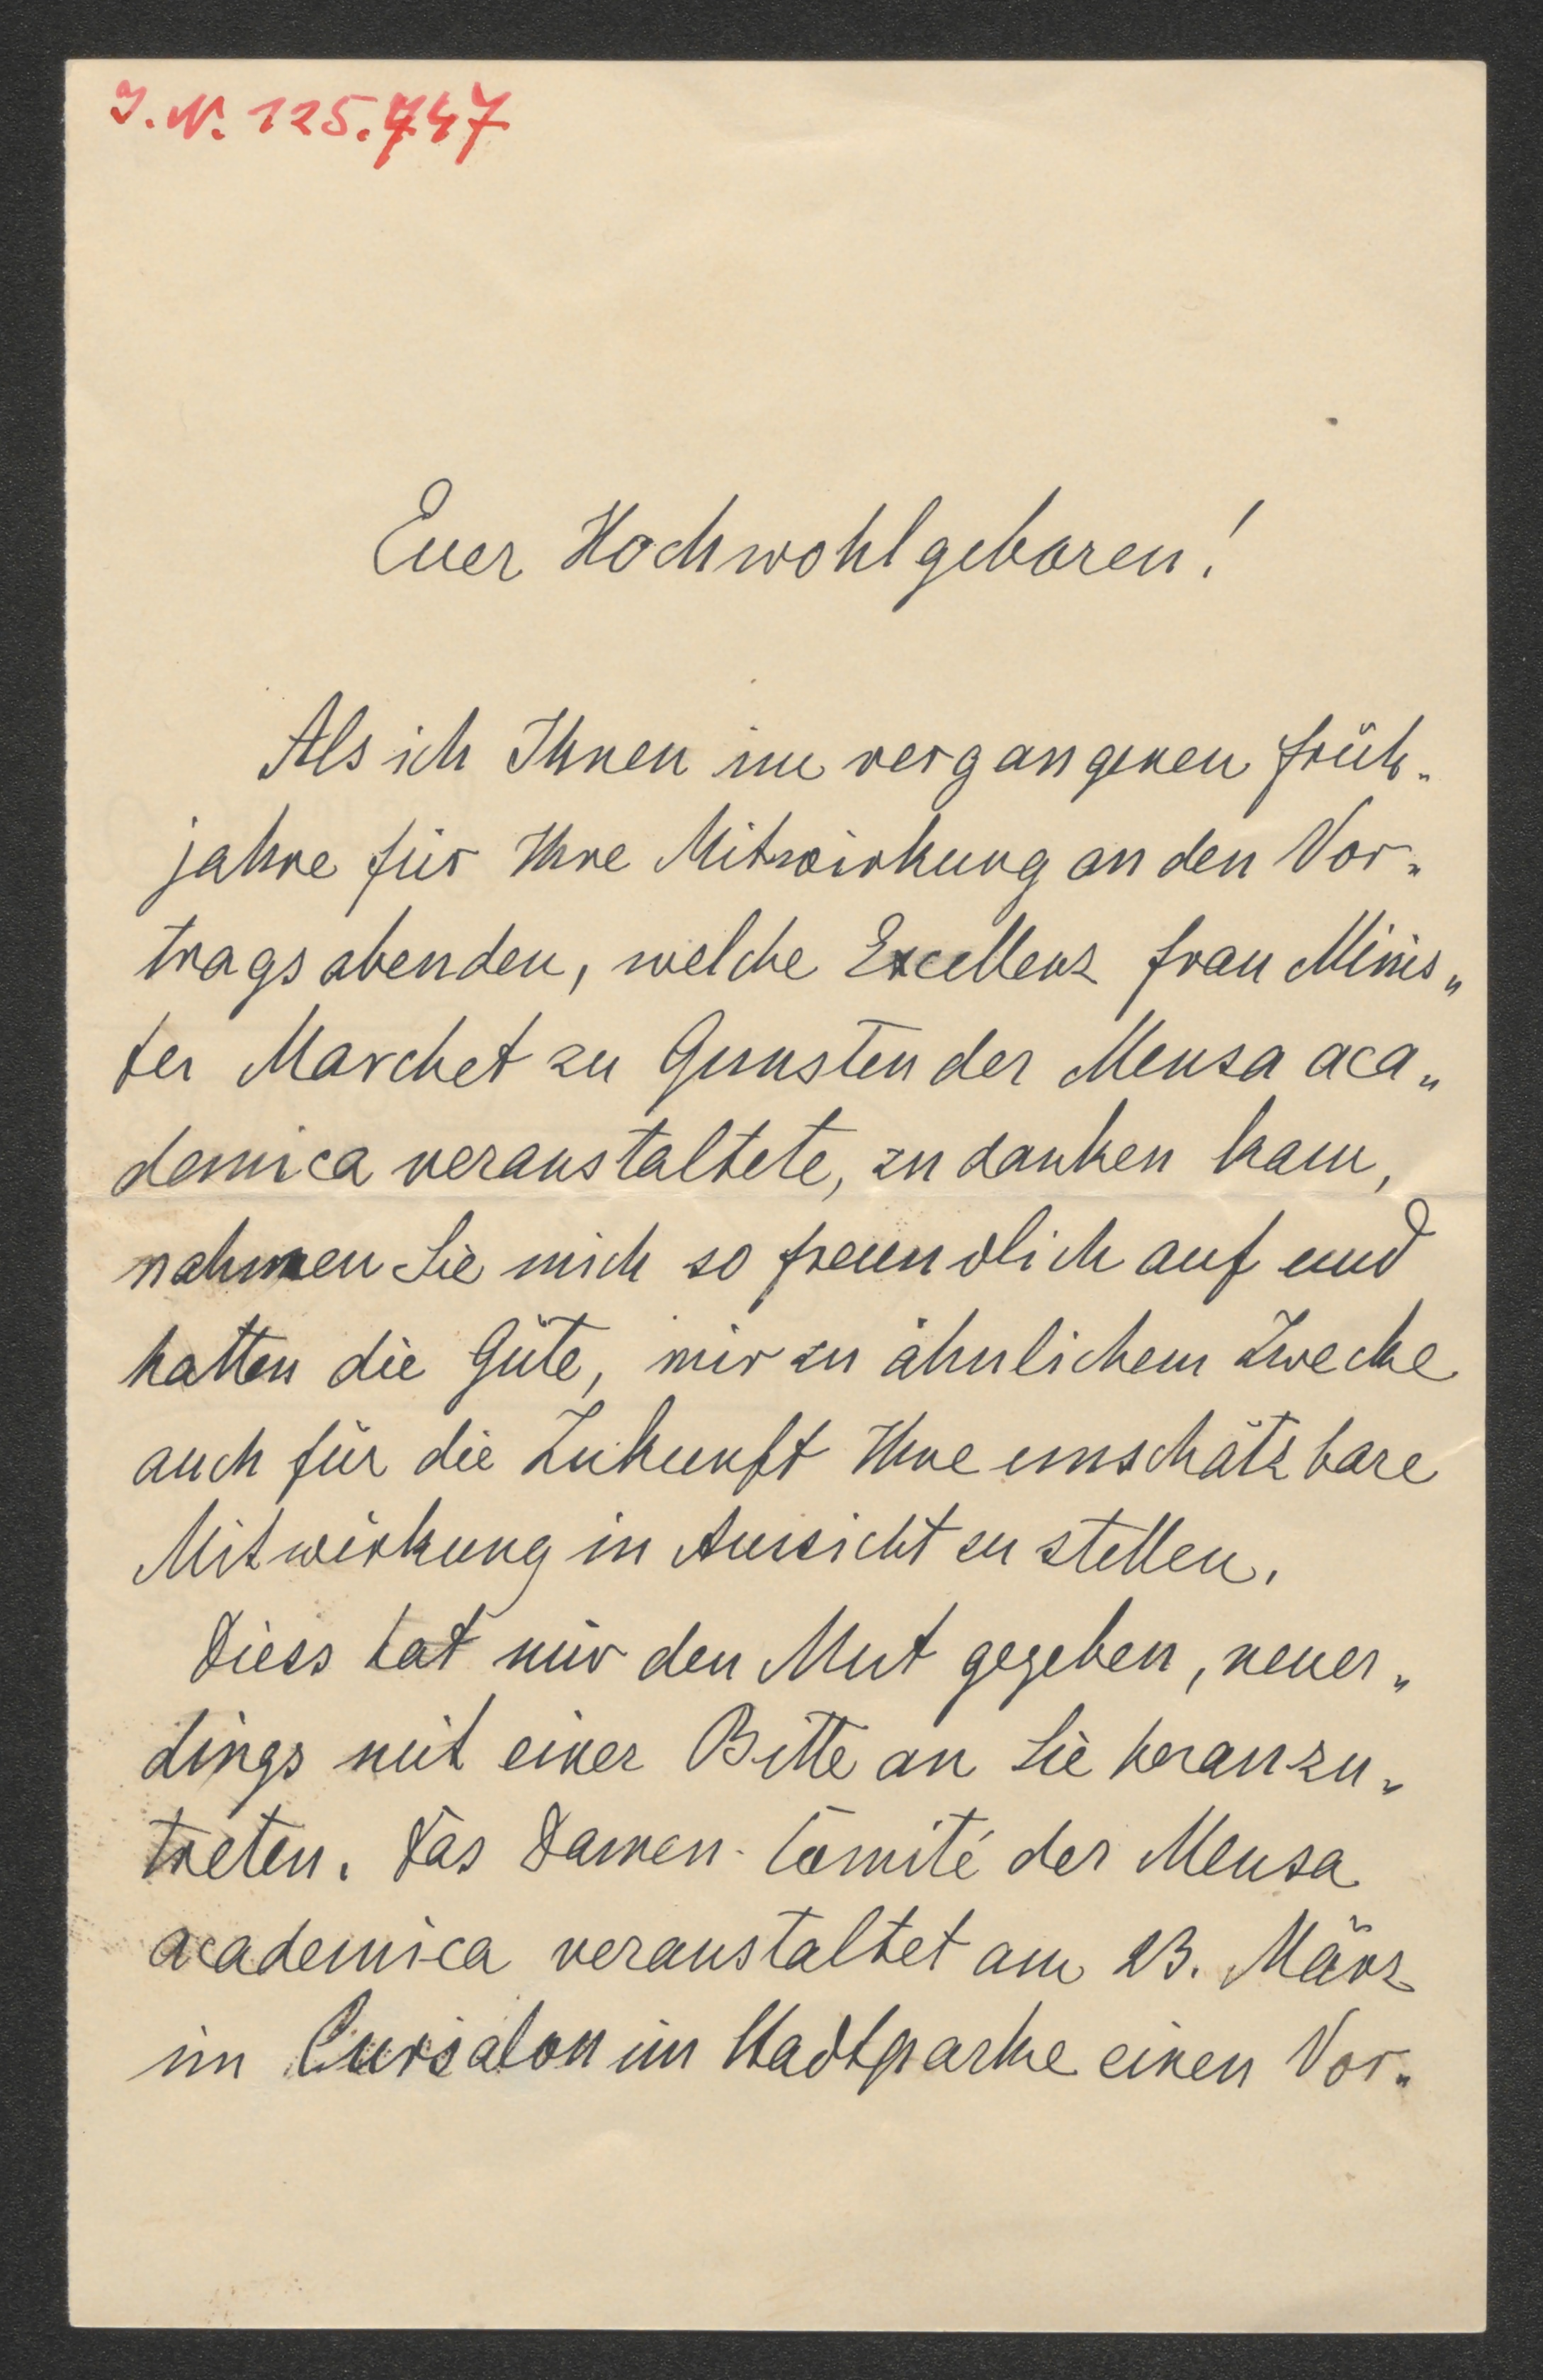 J. N. 125.747
Euer Hochwohlgeboren!
Als ich Ihnen im vergangenen Früh„
jahre für Ihre Mitwirkung an den Vor„
tragsabenden, welche Excellenz Frau Minis„
ter Marchet zu Gunsten der Mensa aca„
demica veranstaltete, zu danken kam,
nahmen Sie mich so freundlich auf und
hatten die Güte, mir zu ähnlichem Zwecke
auch für die Zukunft Ihre unschätzbare
Mitwirkung in Aussicht zu stellen.
Diess hat mir den Mut gegeben, neuer„
dings mit einer Bitte an Sie heranzu„
treten. Das Damen-Comité der Mensa
academica veranstaltet am 23. März
im Cursalon im Stadtparke einen Vor„